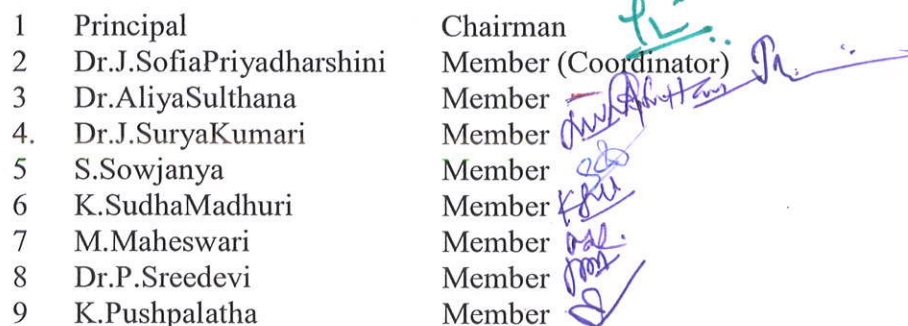 1 Principal Chairman
2 Dr.J.SofiaPriyadharshini Member (Coordinator)
3 Dr.AliyaSulthana Member
4. Dr.J.SuryaKumari Member
5 S.Sowjanya Member
6 K.SudhaMadhuri Member
7 M.Maheswari Member
8 Dr.P.Sreedevi Member
9 K.Pushpalatha Member